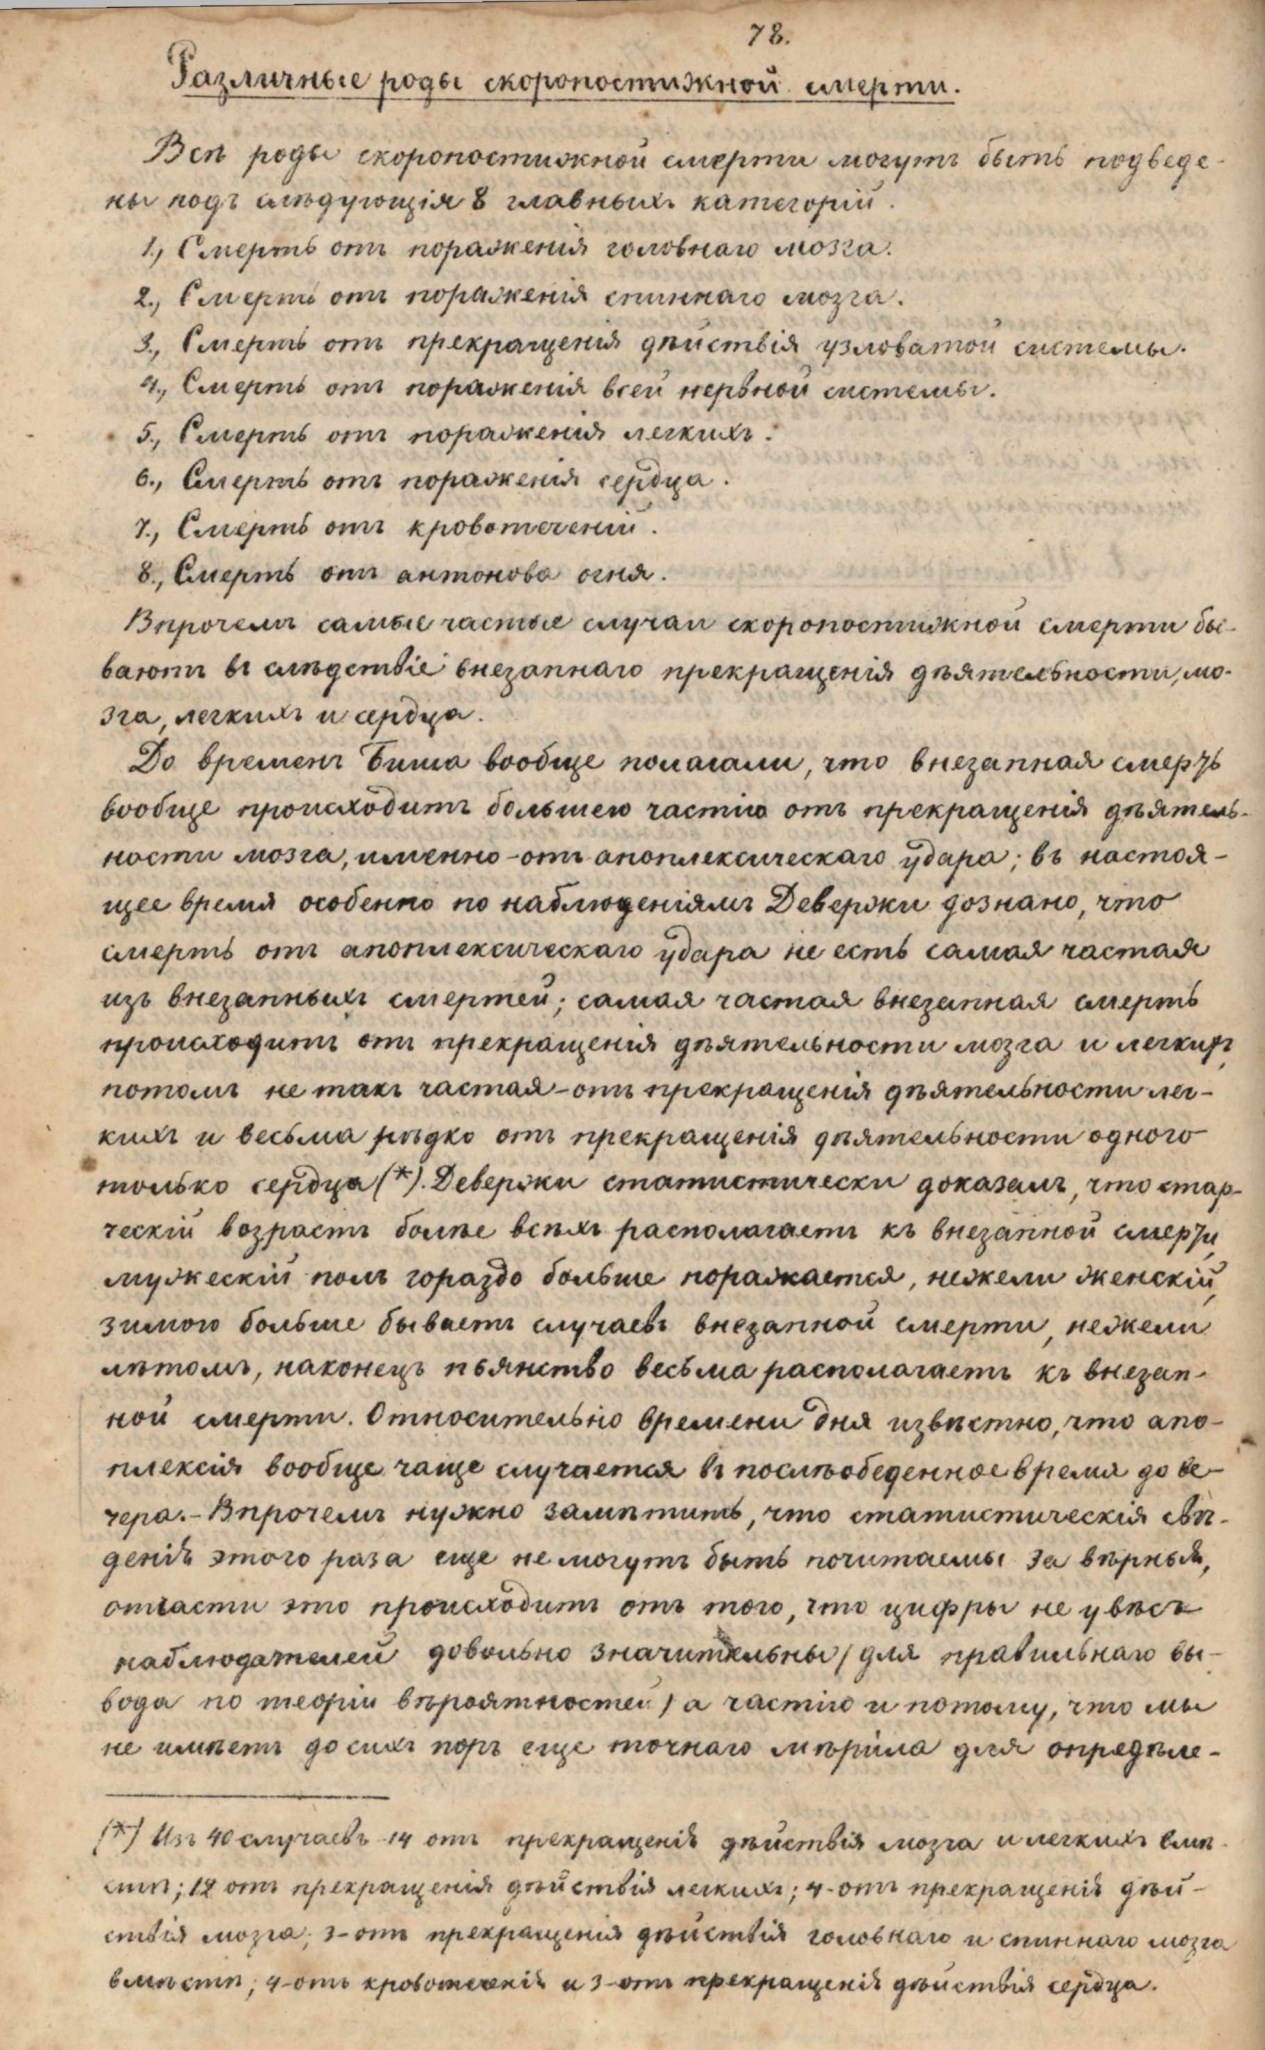 78.
Различные роды скоропостижной смерти.
Всѣ роды скоропостижной смерти могутъ быть подведе-
ны подъ слѣдующія 8 главныхъ категорій.
1., Смерть отъ пораженія головнаго мозга.
2., Смерть отъ пораженія спиннаго мозга.
3., Смерть отъ прекращенія дѣйствія узловатой системы.
4., Смерть отъ пораженія всей нервной системы.
5., Смерть отъ пораженія легкихъ.
6., Смерть отъ пораженія сердца.
7., Смерть отъ кровотеченій.
8., Смерть отъ антонова огня.
Впрочемъ самые частые случаи скоропостижной смерти бы-
ваютъ въ слѣдствіе внезапнаго прекращенія дѣятельности, мо-
зга, легкихъ и сердца.
До временъ Биша вообще полагали, что внезапная смерть
вообще происходитъ большею частію отъ прекращенія дѣятель-
ности мозга, именно-отъ апоплексическаго удара; въ настоя-
щее время особенно по наблюденіямъ Девержи дознано, что
смерть отъ апоплексическаго удара не есть самая частая
изъ внезапныхъ смертей; самая частая внезапная смерть
происходитъ отъ прекращенія дѣятельности мозга и легкихъ,
потомъ не такъ частая-отъ прекращенія дѣятельности лег-
кихъ и весьма рѣдко отъ прекращенія дѣятельности одного
только сердца (*). Девержи статистически доказалъ, что стар-
ческій возрастъ болѣе всѣхъ располагаетъ къ внезапной смерти,
мужескій полъ гораздо больше поражается, нежели женскій,
зимою больше бываетъ случаевъ внезапной смерти, нежели
лѣтомъ, наконецъ пьянство весьма располагаетъ къ внезап-
ной смерти. Относительно времени дня извѣстно, что апо-
плексія вообще чаще случается въ послѣобеденное время до ве-
чера.- Впрочемъ нужно замѣтить, что статистическія свѣ-
деній этого раза еще не могутъ быть почитаемы за вѣрныя,
отчасти это происходитъ отъ того, что цифры не у всѣхъ
наблюдателей довольно значительны (для правильнаго вы-
вода по теоріи вѣроятностей) а частію и потому, что мы
не имѣетъ до сихъ поръ еще точнаго мѣрила для опредѣле-
(*) Изъ 40 случаевъ-14 отъ прекращеній дѣйствія мозга и легкихъ вмѣ-
стѣ; 12 отъ прекращенія дѣйствія легкихъ; 4-отъ прекращеній дѣй-
ствія мозга; 3-отъ прекращенія дѣйствія головнаго и спиннаго мозга
вмѣстѣ; 4-отъ кровотеченій и 3-отъ прекращеній дѣйствія сердца.